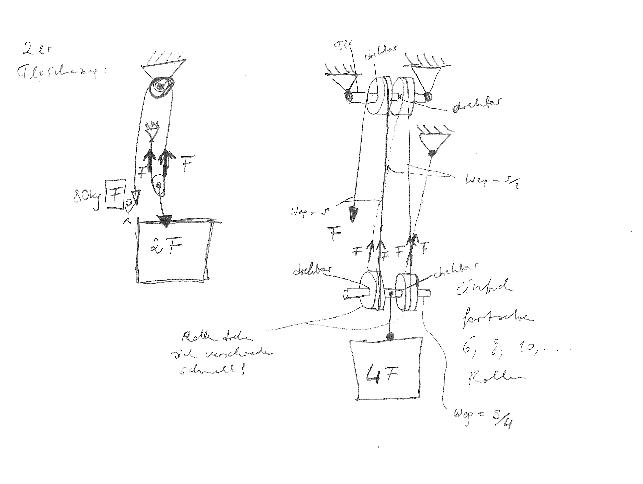 2er
Flaschenzug:
drehbar
drehbar
F
F
80kg
F
2F
Weg = s
F
Weg = s/2
F
F
F
F
drehbar
drehbar
Rollen drehen
sich verschieden
schnell!
4F
Einfach
fortsetzen
6, 8, 10, ....
Rollen
Weg = s/4